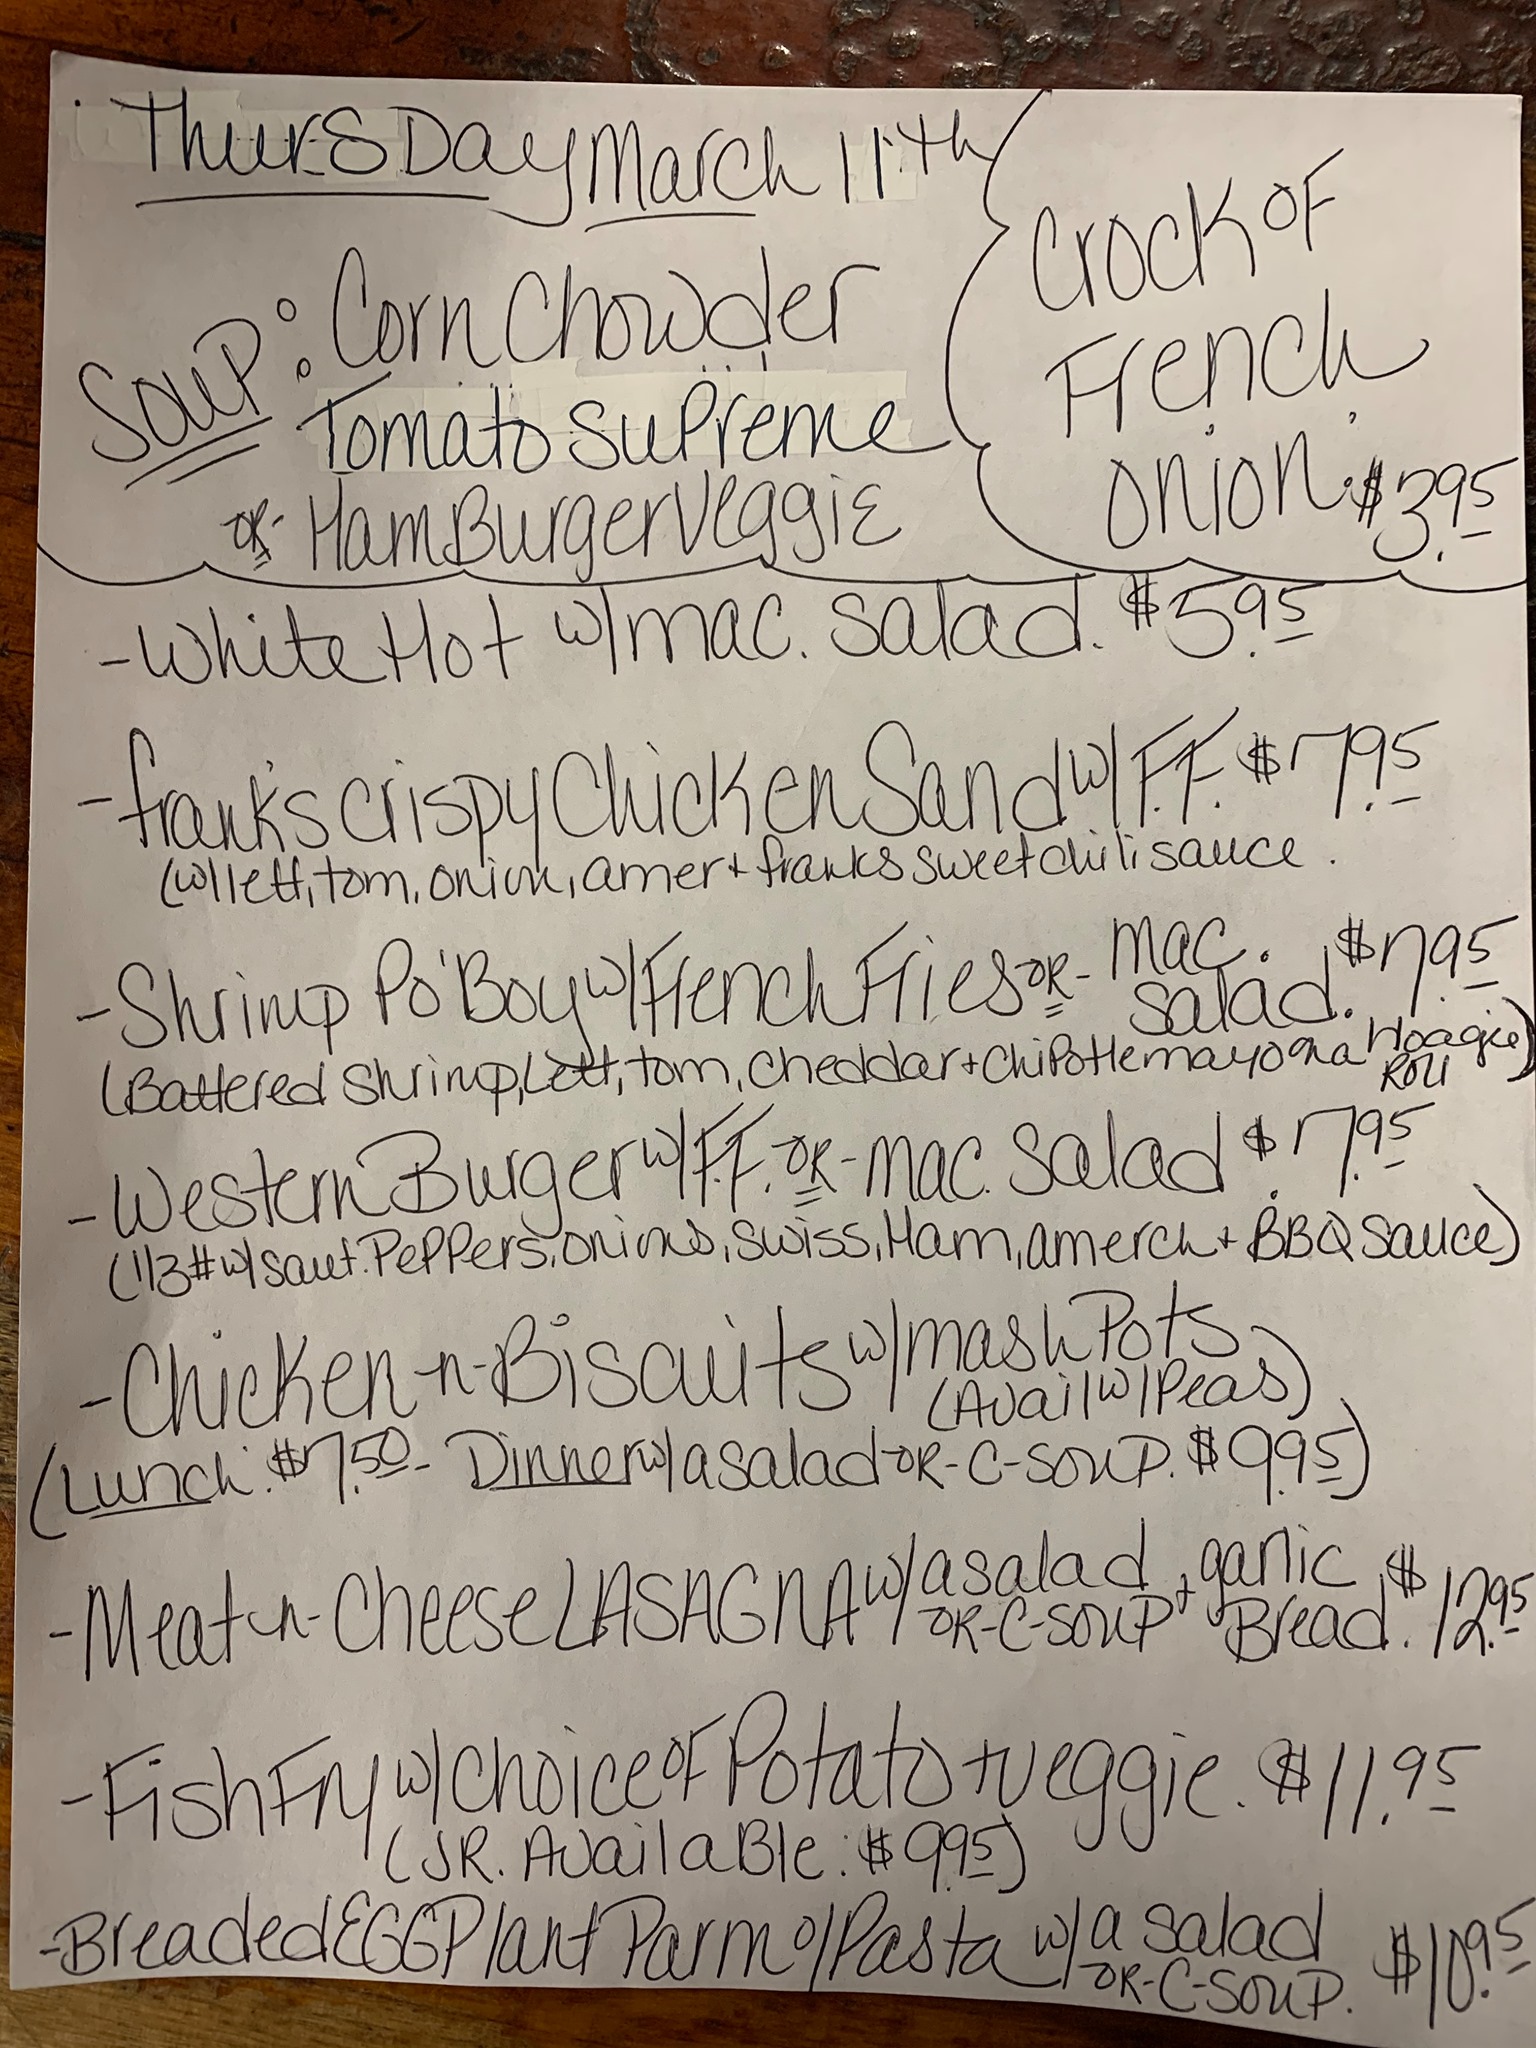 Thursday March 11th
Soup: Corn Chowder
Tomato Supreme
or Hamburger Veggie
Crock of
French
Onion. $3.95
- White Hot w/ mac. salad. $5.95
- Frank's Crispy Chicken Sand w/ F.F. $7.95
(w/ lett, tom, onion, amer + franks sweet chili sauce.
- Shrimp Po'Boy w/ French Fries or - mac. salad. $7.95
(Battered Shrimp, Lett, tom, cheddar + chipotle mayo on a Hoagie Roll)
- Western Burger w/ F.F. or - mac. salad $7.95
(1/3# w/ saut. Peppers, onions, swiss, Ham, amerch + BBQ sauce)
- Chicken-n-Biscuits w/ mash Pots
(Avail w/ Peas)
(Lunch: $7.50 - Dinner w/ a salad or - c-soup. $9.95)
- Meat-n-Cheese LASAGNA w/ a salad or-c-soup + garlic Bread. $12.95
- Fish Fry w/ choice of Potato + veggie. $11.95
(JR. Available: $9.95)
- Breaded Eggplant Parm o/ Pasta w/ a salad or-c-soup. $10.95